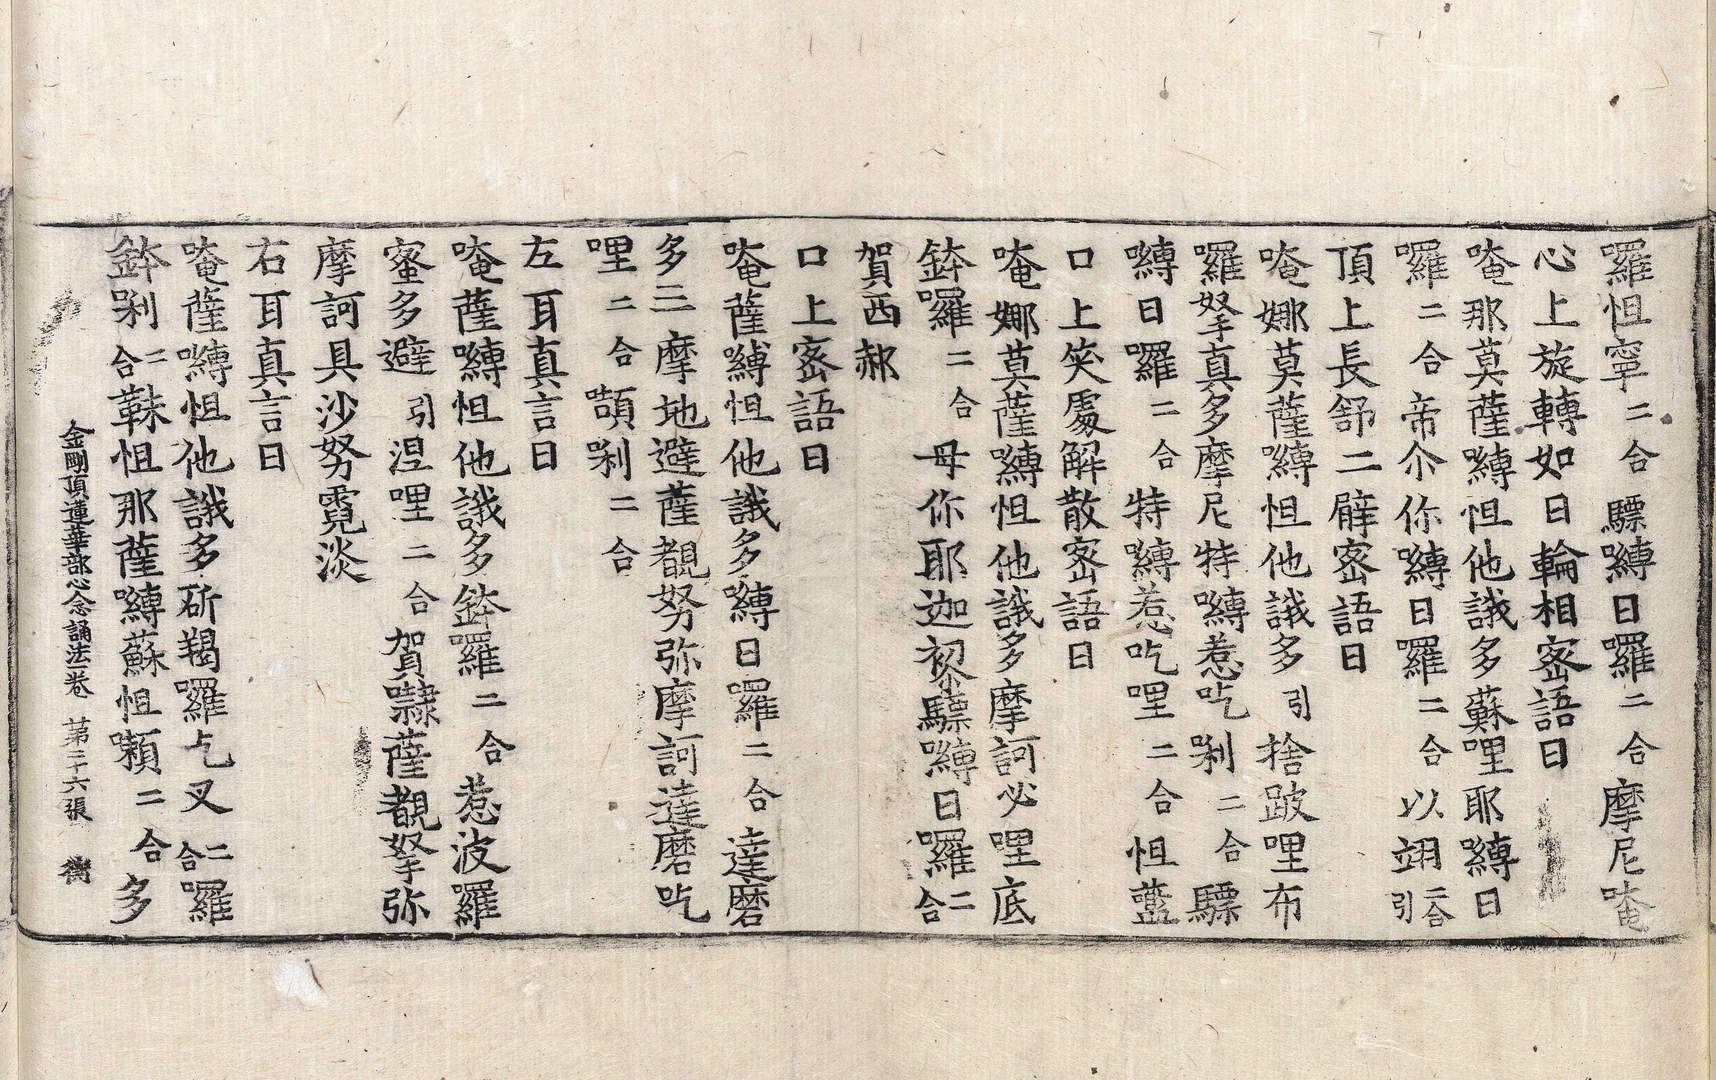 囉怛寧二合驃嚩日囉二合摩尼唵
心上旋轉如日輪相密語曰
唵那莫薩嚩怛他誐多蘇哩耶嚩日
囉二合帝尒你嚩日囉二合以翊二合引
頂上長舒二臂密語曰
唵娜莫薩嚩怛他誐多引捨跛哩布
囉拏真多摩尼特嚩惹吃剎二合驃
嚩日囉二合特嚩惹吃哩二合怛藍
口上笑處解散密語曰
唵娜莫薩嚩怛他誐多摩訶必哩底
鉢囉二合毋你耶迦𥟖驃嚩日囉二合
賀西郝
口上密語曰
唵薩嚩怛他誐多嚩日囉二合達磨
多三摩地避薩覩努弥摩訶達磨吃
哩二合頡剎二合
左耳真言曰
唵薩嚩怛他誐多鉢囉二合惹波羅
蜜多避引涅哩二合賀㘑薩覩拏弥
摩訶具沙努霓淡
右耳真言曰
唵薩嚩怛他誐多斫羯囉乞叉二合囉
鉢剎二合靺怛那薩嚩蘇怛囕二合多
金剛頂蓮華部心念誦法一卷 第三十六張